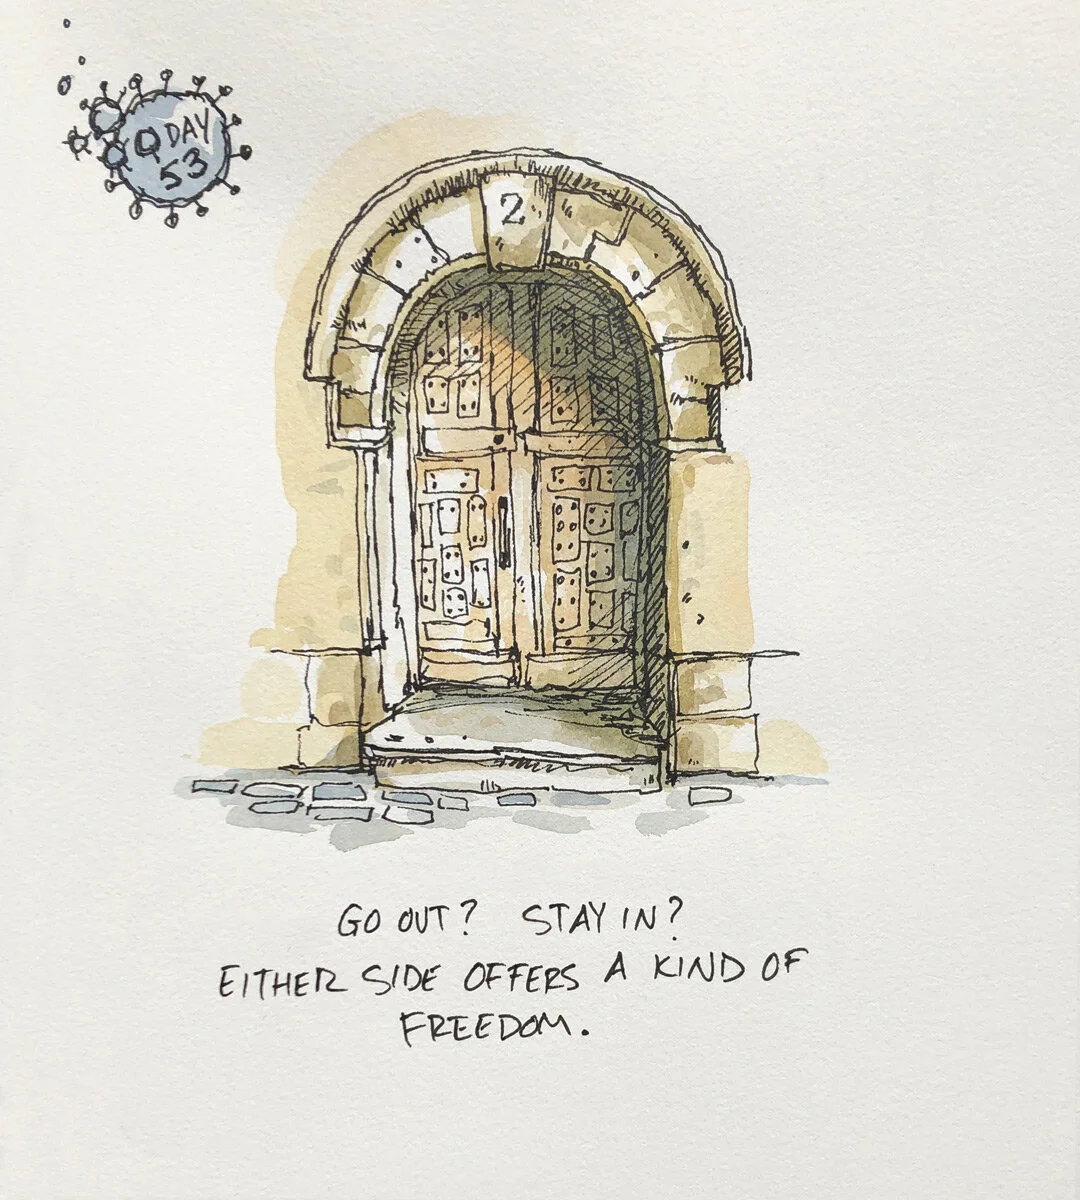 Q DAY
53
2
GO OUT? STAY IN?
EITHER SIDE OFFERS A KIND OF
FREEDOM.